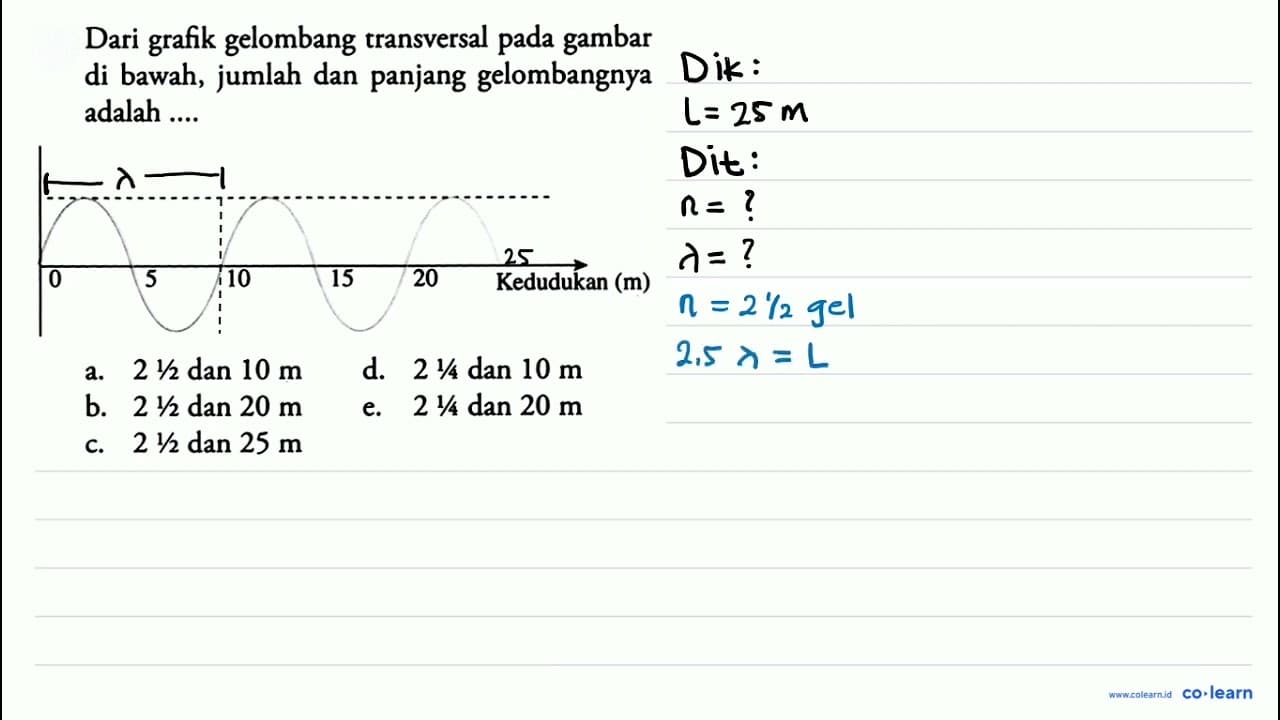 Dari grafik gelombang transversal pada gambar
di bawah, jumlah dan panjang gelombangnya
adalah ....
λ
25
0 5 10 15 20 Kedudukan (m)
a. 2 ½ dan 10 m d. 2 ¼ dan 10 m
b. 2 ½ dan 20 m e. 2 ¼ dan 20 m
c. 2 ½ dan 25 m
Dik:
L = 25 m
Dit:
n = ?
λ = ?
n = 2 ½ gel
2,5 λ = L
www.colearn.id co·learn